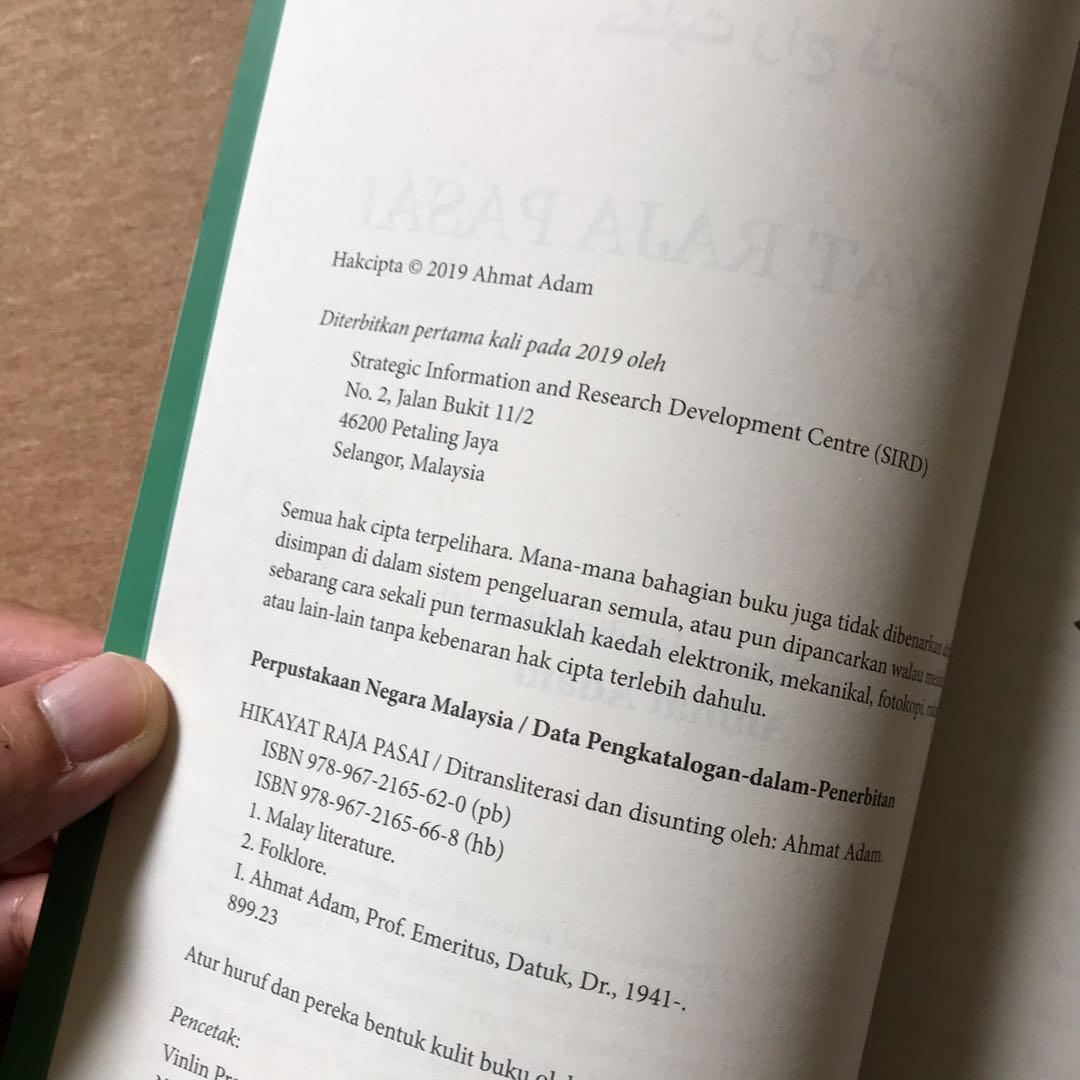 Hakcipta © 2019 Ahmat Adam
Diterbitkan pertama kali pada 2019 oleh
Strategic Information and Research Development Centre (SIRD)
No. 2, Jalan Bukit 11/2
46200 Petaling Jaya
Selangor, Malaysia
Semua hak cipta terpelihara. Mana-mana bahagian buku juga tidak dibenarkan
disimpan di dalam sistem pengeluaran semula, atau pun dipancarkan walau
sebarang cara sekali pun termasuklah kaedah elektronik, mekanikal, fotokopi,
atau lain-lain tanpa kebenaran hak cipta terlebih dahulu.
Perpustakaan Negara Malaysia / Data Pengkatalogan-dalam-Penerbitan
HIKAYAT RAJA PASAI / Ditransliterasi dan disunting oleh: Ahmat Adam.
ISBN 978-967-2165-62-0 (pb)
ISBN 978-967-2165-66-8 (hb)
1. Malay literature.
2. Folklore.
I. Ahmat Adam, Prof. Emeritus, Datuk, Dr., 1941-.
899.23
Atur huruf dan pereka bentuk kulit buku
Pencetak:
Vinlin